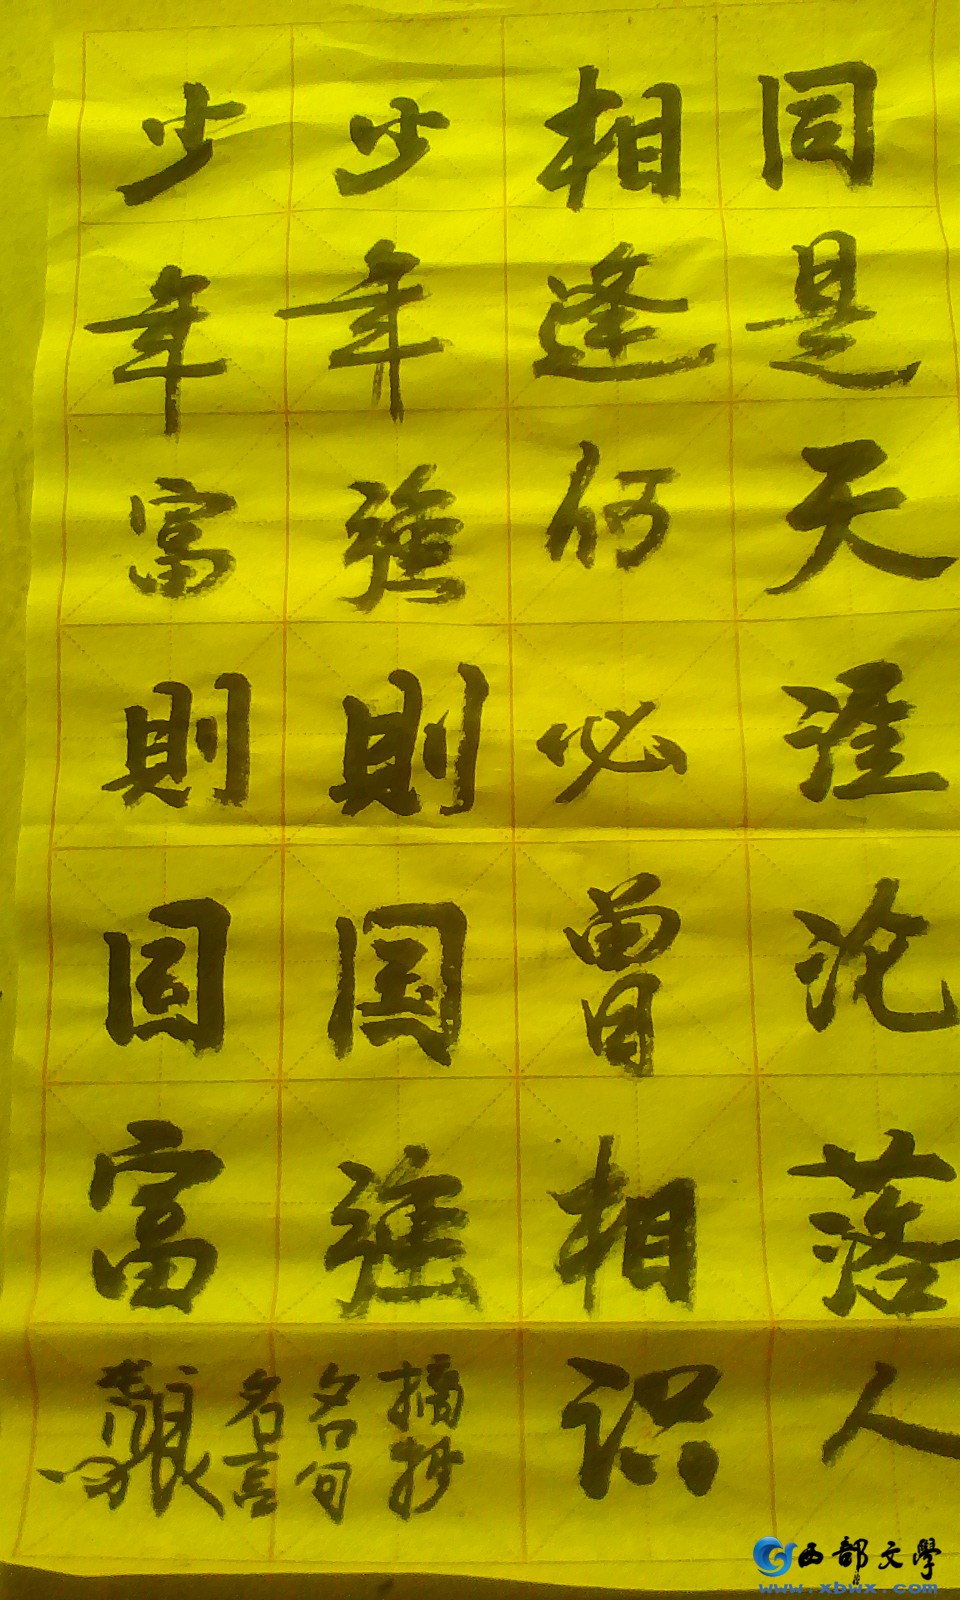 同是天涯沦落人
相逢何必曾相识
少年强则国强
少年富則国富
摘抄
名句
名言
西部文學
www.xbwx.com